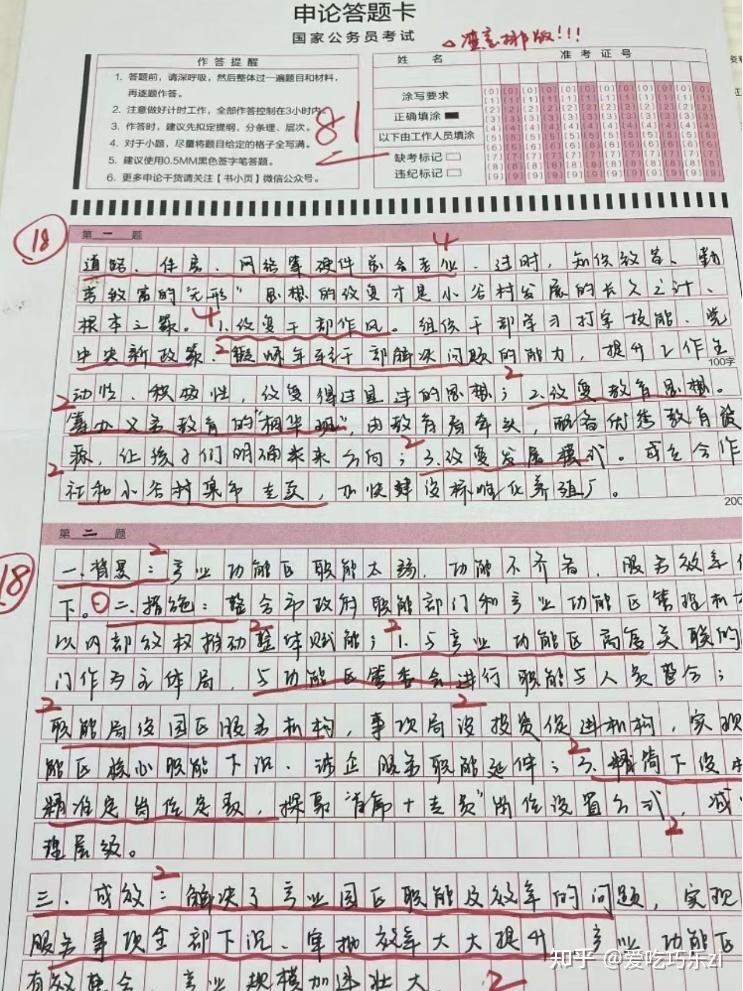 申论答题卡
国家公务员考试
注意排版!!!
作答提醒
1. 答题前，请深呼吸，然后整体过一遍题目和材料，
再逐题作答。
2. 注意做好计时工作，全部作答控制在3小时内
3. 作答时，建议先拟定提纲，分条理、层次。
4. 对于小题，尽量将题目给定的格子全写满。
5. 建议使用0.5MM黑色签字笔答题。
6. 更多申论干货请关注【书小页】微信公众号。
81
姓名
准考证号
涂写要求
正确填涂
以下由工作人员填涂
缺考标记
违纪标记
18
第一题
4
道路、住房、网络等硬件总会老化、过时，知识效益、勤
劳致富的“无形”思想的改变才是小谷村发展的长久之计、
根本之策。4 1.改变干部作风。组织干部学习打字技能、党
中央新政策，2 锻炼年轻干部解决问题的能力，提升工作主
100字
动性、积极性，改变得过且过的思想；2 2.改变教育思想。
2
喜办义务教育的“相华班”，由教育局牵头，配备优秀教育资
源，让孩子们明确未来方向；2 3.改变发展模式。成立合作
2
社和小谷村集市走点，加快建设标准化养殖厂。
200
18
第二题
一、背景：2 产业功能区职能太弱，功能不齐备，服务效率低
下。二、措施：整合市政府职能部门和产业功能区管理机
以内部放权推动整体赋能；2 1.与产业功能区高度关联的
门作为主体局，与功能区管委会进行职能与人员整合；
2
职能局设园区服务机构，事项局设投资促进机构，实现
能区核心职能下沉、涉企服务职能延伸；2 3.精简下设
精准定岗位定员，探索“首席+专员”岗位设置方式，减
2
理层级。
三、成效：2 解决了产业园区职能及效率的问题，实现
服务事项全部下沉、审批效率大大提升，产业功能区
有效整合，产业规模加速壮大。2
知乎 @爱吃巧乐zl